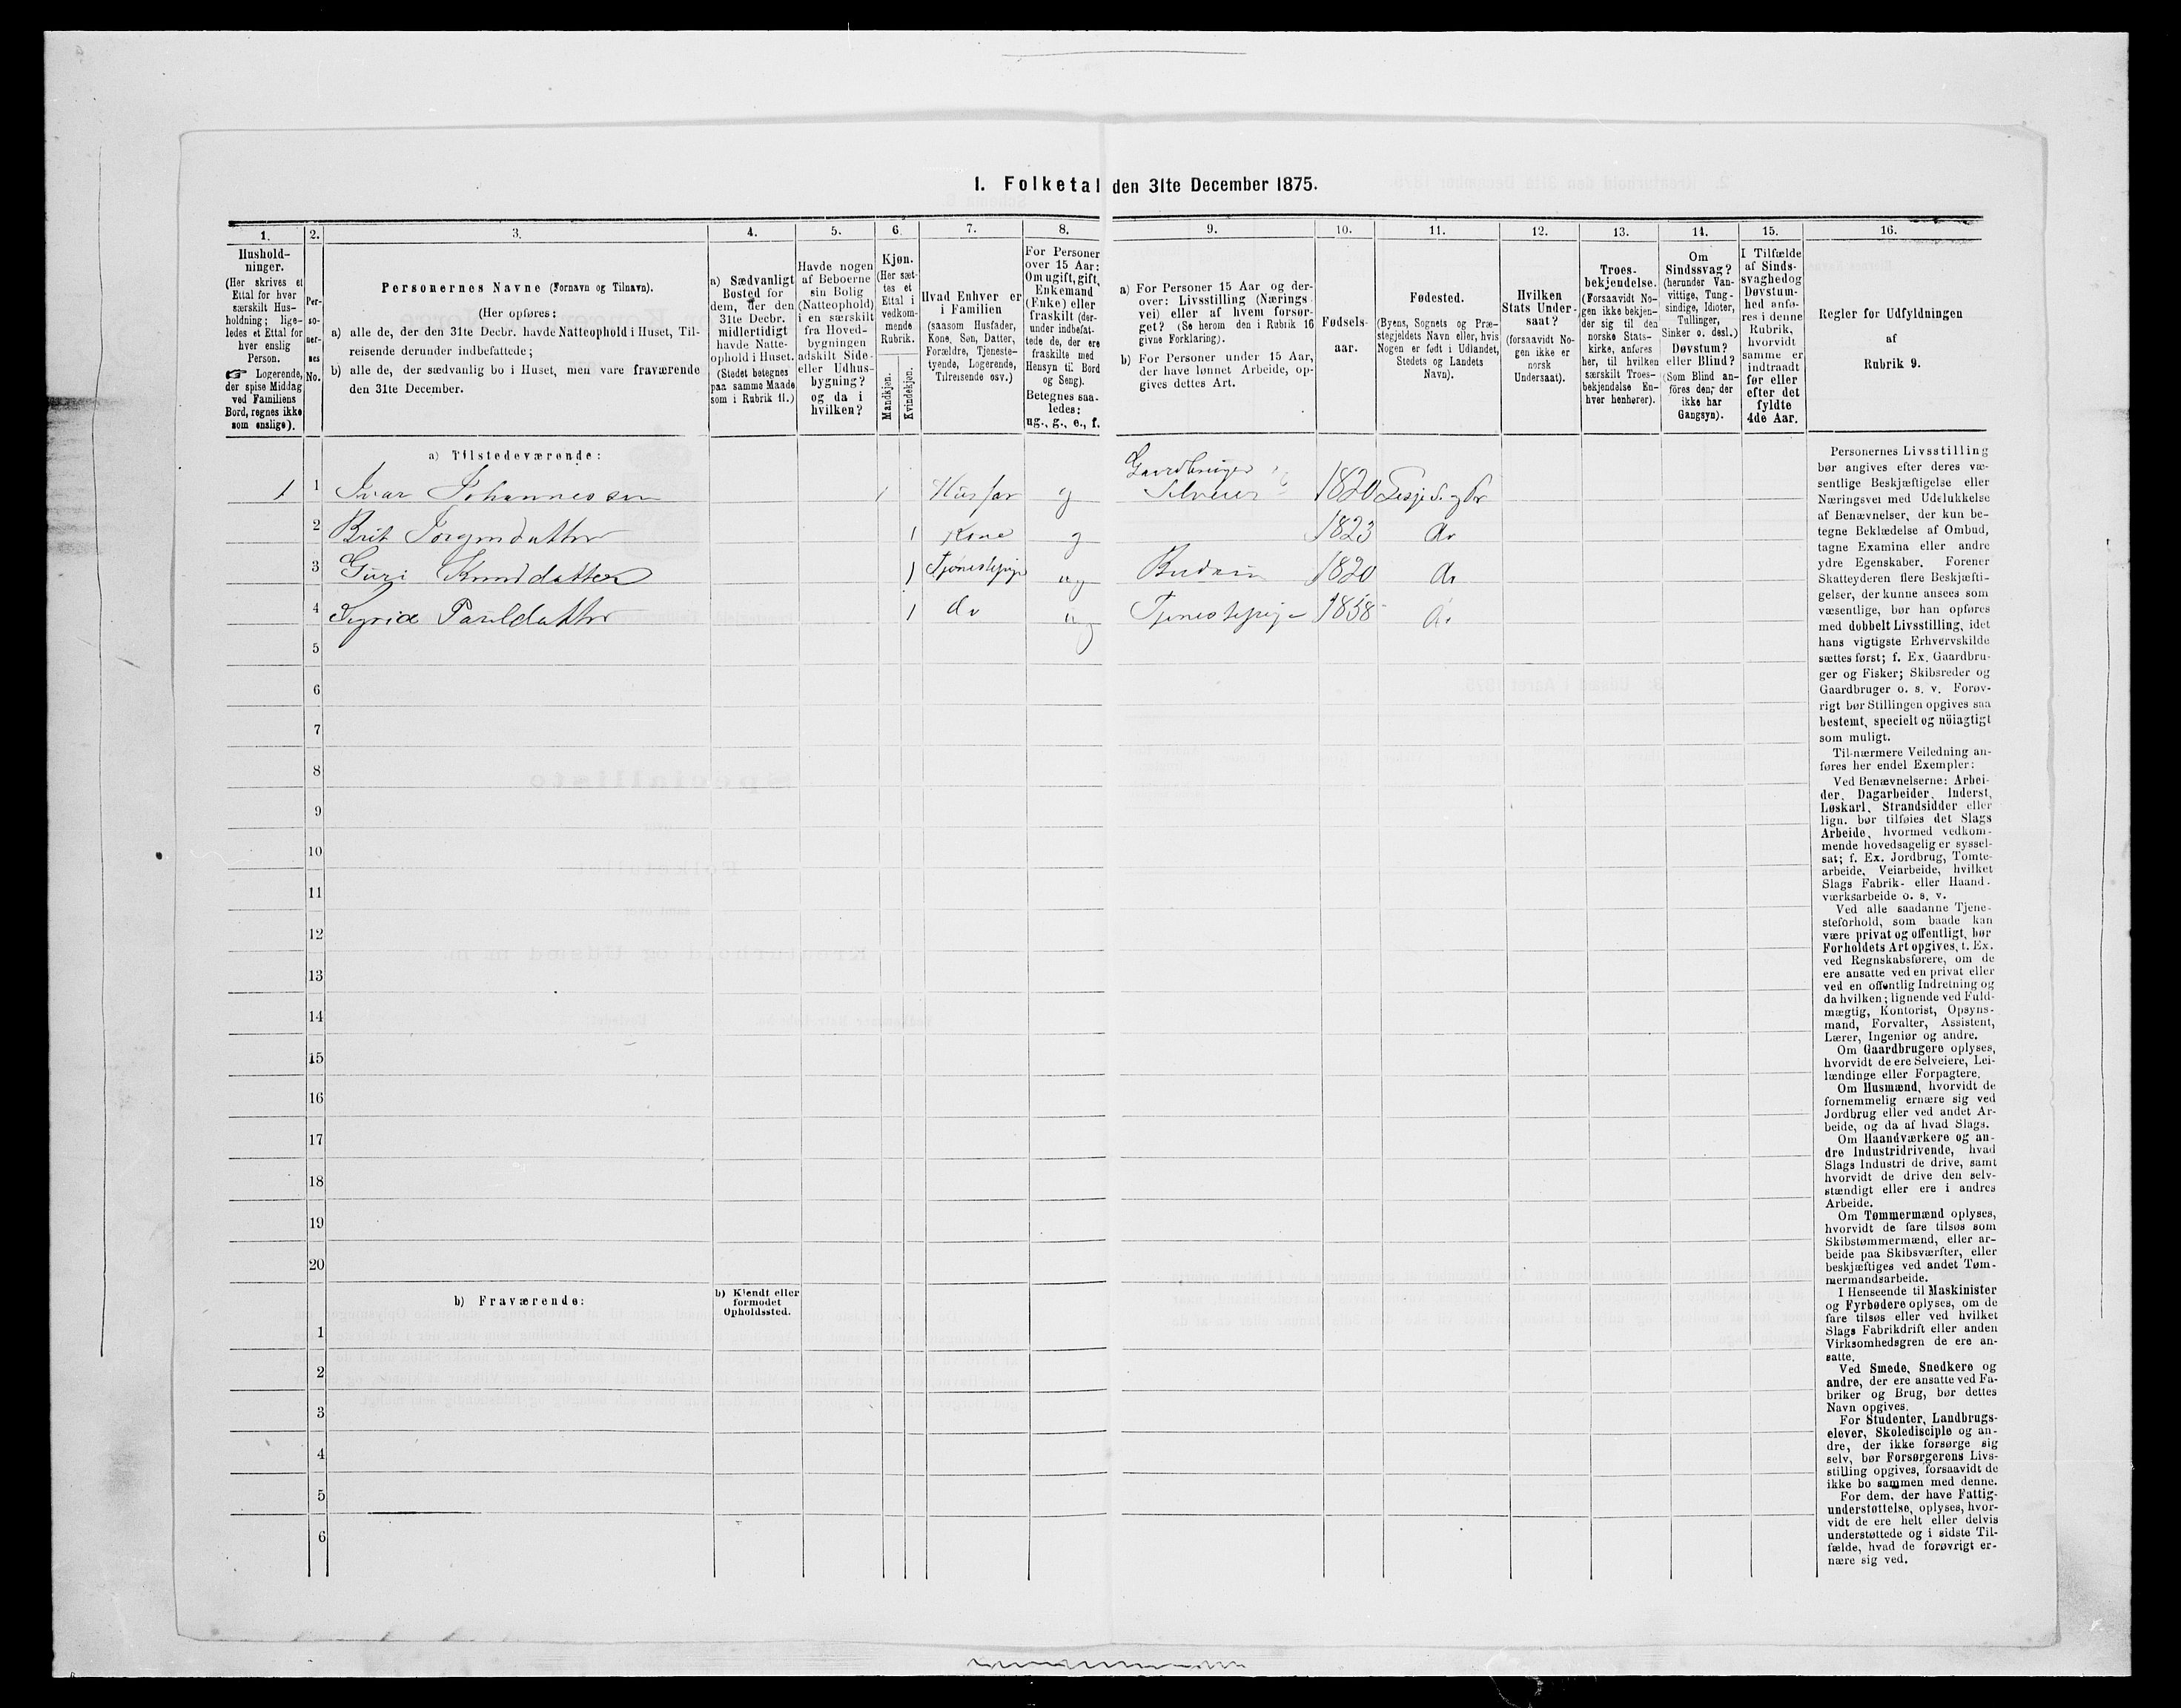 I. Folketal den 31te December 1875.
1.
Hushold-
ninger.
(Her skrives et
Ettal for hver
særskilt Hus-
holdning; lige-
ledes et Ettal for
hver enslig
Person.
☞ Logerende,
der spise Middag
ved Familiens
Bord, regnes ikke
som enslige).
2.
Per-
so-
ner-
nes
No.
3.
Personernes Navne (Fornavn og Tilnavn).
(Her opføres:
a) alle de, der den 31te Decbr. havde Natteophold i Huset, Til-
reisende derunder indbefattede;
b) alle de, der sædvanlig bo i Huset, men vare fraværende
den 31te December.
4.
a) Sædvanligt
Bosted for
dem, der den
31te Decbr.
midlertidigt
havde Natte-
ophold i Huset.
(Stedet betegnes
paa samme Maade
som i Rubrik 11.)
5.
Havde nogen
af Beboerne
sin Bolig
(Natteophold)
i en særskilt
fra Hoved-
bygningen
adskilt Side-
eller Udhus-
bygning?
og da i
hvilken?
6.
Kjøn.
(Her sæt-
tes et
Ettal i
vedkom-
mende
Rubrik.
Mandkjøn.
Kvindekjøn.
7.
Hvad Enhver er
i Familien
(saasom Husfader,
Kone, Søn, Datter,
Forældre, Tjeneste-
tyende, Logerende,
Tilreisende osv.)
8.
For Personer
over 15 Aar:
Om ugift, gift,
Enkemand
(Enke) eller
fraskilt (der-
under indbefat-
tede de, der ere
fraskilte med
Hensyn til Bord
og Seng).
Betegnes saa-
ledes:
ug., g., e., f.
9.
a) For Personer 15 Aar og der-
over: Livsstilling (Nærings-
vei) eller af hvem forsør-
get? (Se herom den i Rubrik 16
givne Forklaring).
b) For Personer under 15 Aar,
der have lønnet Arbeide, op-
gives dettes Art.
10.
Fødsels-
aar.
11.
Fødested.
(Byens, Sognets og Præ-
stegjeldets Navn eller, hvis
Nogen er født i Udlandet,
Stedets og Landets
Navn).
12.
Hvilken
Stats Under-
saat?
(forsaavidt No-
gen ikke er
norsk
Undersaat).
13.
Troes-
bekjendelse.
(Forsaavidt No-
gen ikke bekjen-
der sig til den
norske Stats-
kirke, anføres
her, til hvilken
særskilt Troes-
bekjendelse En-
hver henhører).
14.
Om
Sindssvag?
(herunder Van-
vittige, Tung-
sindige, Idioter,
Tullinger,
Sinker o. desl.)
Døvstum?
eller Blind?
(Som Blind an-
føres den, der
ikke har
Gangsyn).
15.
I Tilfælde
af Sinds-
svaghed og
Døvstum-
hed anfø-
res i denne
Rubrik,
hvorvidt
samme er
indtraadt
før eller
efter det
fyldte
4de Aar.
16.
Regler for Udfyldningen
af
Rubrik 9.
a) Tilstedeværende:
Gaardbruger
1 1 Ivar Johannessen 1 Husfar g Selveier 1820 Lesje S. og Pr
2 Brit Jørgendatter 1 Kone g 1823 do
3 Guri Knudsdatter 1 Tjenestepige ug Budeie 1820 do
4 Sigrid Pauldatter 1 do ug Tjenestepige 1858 do
5
6
7
8
9
10
11
12
13
14
15
16
17
18
19
20
b) Fraværende:
b) Kjendt eller
formodet
Opholdssted.
1
2
3
4
5
6
Personernes Livsstilling
bør angives efter deres væ-
sentlige Beskjæftigelse eller
Næringsvei med Udelukkelse
af Benævnelser, der kun be-
tegne Beklædelse af Ombud,
tagne Examina eller andre
ydre Egenskaber. Forener
Skatteyderen flere Beskjæfti-
gelser, der kunne ansees som
væsentlige, bør han opføres
med dobbelt Livsstilling, idet
hans vigtigste Erhvervskilde
sættes først; f. Ex. Gaardbru-
ger og Fisker; Skibsreder og
Gaardbruger o. s. v. Forøv-
rigt bør Stillingen opgives saa
bestemt, specielt og nöiagtigt
som muligt.
Til nærmere Veiledning an-
føres her endel Exempler:
Ved Benævnelserne: Arbei-
der, Dagarbeider, Inderst,
Løskarl, Strandsidder eller
lign. bør tilføies det Slags
Arbeide, hvormed vedkom-
mende hovedsagelig er syssel-
sat; f. Ex. Jordbrug, Tomte-
arbeide, Veiarbeide, hvilket
Slags Fabrik- eller Haand-
værksarbeide o. s. v.
Ved alle saadanne Tjene-
steforhold, som baade kan
være privat og offentligt, bør
Forholdets Art opgives, t. Ex.
ved Regnskabsførere, om de
ere ansatte ved en privat eller
ved en offentlig Indretning og
da hvilken; lignende ved Fuld-
mægtig, Kontorist, Opsyns-
mand, Forvalter, Assistent,
Lærer, Ingeniør og andre.
Om Gaardbrugere oplyses,
hvorvidt de ere Selveiere, Lei-
lændinge eller Forpagtere.
Om Husmænd, hvorvidt de
fornemmelig ernære sig ved
Jordbrug eller ved andet Ar-
beide, og da af hvad Slags.
Om Haandværkere og an-
dre Industridrivende, hvad
Slags Industri de drive, samt
hvorvidt de drive den selv-
stændigt eller ere i andres
Arbeide.
Om Tømmermænd oplyses,
hvorvidt de fare tilsøs som
Skibstømmermænd, eller ar-
beide paa Skibsværfter, eller
beskjæftiges ved andet Tøm-
mermandsarbeide.
I Henseende til Maskinister
og Fyrbødere oplyses, om de
fare tilsøs eller ved hvilket
Slags Fabrikdrift eller anden
Virksomhedsgren de ere an-
satte.
Ved Smede, Snedkere og
andre, der ere ansatte ved Fa-
briker og Brug, bør dettes
Navn opgives.
For Studenter, Landbrugs-
elever, Skoledisciple og an-
dre, der ikke forsørge sig
selv, bør Forsørgerens Livs-
stilling opgives, forsaavidt de
ikke bo sammen med denne.
For dem, der have Fattig-
understøttelse, oplyses, hvor-
vidt de ere helt eller delvis
understøttede og i sidste Til-
fælde, hvad de forøvrigt er-
nære sig ved.